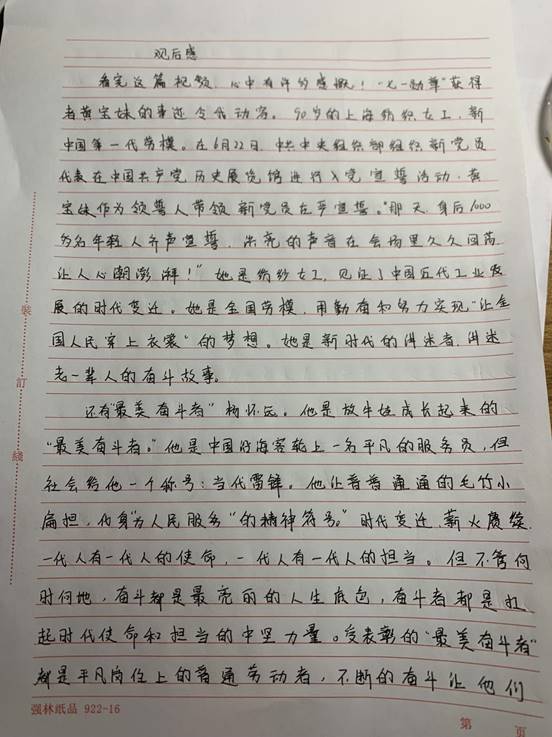 观后感
看完这篇视频，心中有许多感慨！“七一勋章”获得
者黄宝妹的事迹令我动容。90岁的上海纺织女工，新
中国第一代劳模。在6月22日，中共中央组织部组织新党员
代表在中国共产党历史展览馆进行入党宣誓活动，黄
宝妹作为领誓人带领新党员庄严宣誓。“那天，身后1000
多名年轻人齐声宣誓，洪亮的声音在会场里久久回荡
让人心潮澎湃！”她是纺纱女工，见证了中国近代工业发
展的时代变迁。她是全国劳模，用勤奋和努力实现“让全
国人民穿上衣裳”的梦想。她是新时代的讲述者，讲述
老一辈人的奋斗故事。
还有“最美奋斗者”杨怀远。他是放牛娃成长起来的
“最美奋斗者。”他是中国沿海客轮上一名平凡的服务员，但
社会给他一个称号：当代雷锋。他让普普通通的毛竹小
扁担，化身“为人民服务“的精神符号。”时代变迁，薪火赓续
一代人有一代人的使命，一代人有一代人的担当。但不管何
时何地，奋斗都是最亮丽的人生底色，奋斗者都是扛
起时代使命和担当的中坚力量。受表彰的“最美奋斗者”
都是平凡岗位上的普通劳动者，不断的奋斗让他们
装
订
线
强林纸品 922-16
第 页